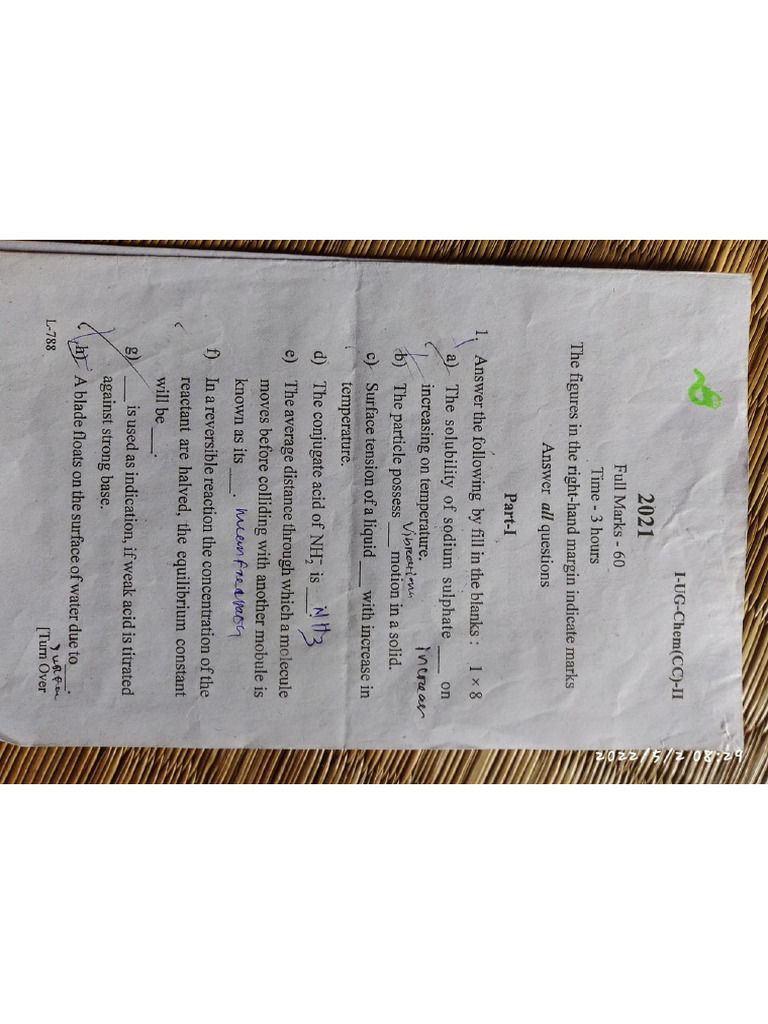 I-UG-Chem(CC)-II
2021
Full Marks - 60
Time - 3 hours
The figures in the right-hand margin indicate marks
Answer all questions
Part-I
1. Answer the following by fill in the blanks : 1 × 8
a) The solubility of sodium sulphate ___ on
increasing on temperature.
b) The particle possess ___ motion in a solid.
c) Surface tension of a liquid ___ with increase in
temperature.
d) The conjugate acid of NH₂⁻ is ___. NH3
e) The average distance through which a molecule
moves before colliding with another mobule is
known as its ___.
f) In a reversible reaction the concentration of the
reactant are halved, the equilibrium constant
will be ___.
g) ___ is used as indication, if weak acid is titrated
against strong base.
h) A blade floats on the surface of water due to ___.
L-788 [Turn Over
2022/5/2 08:29